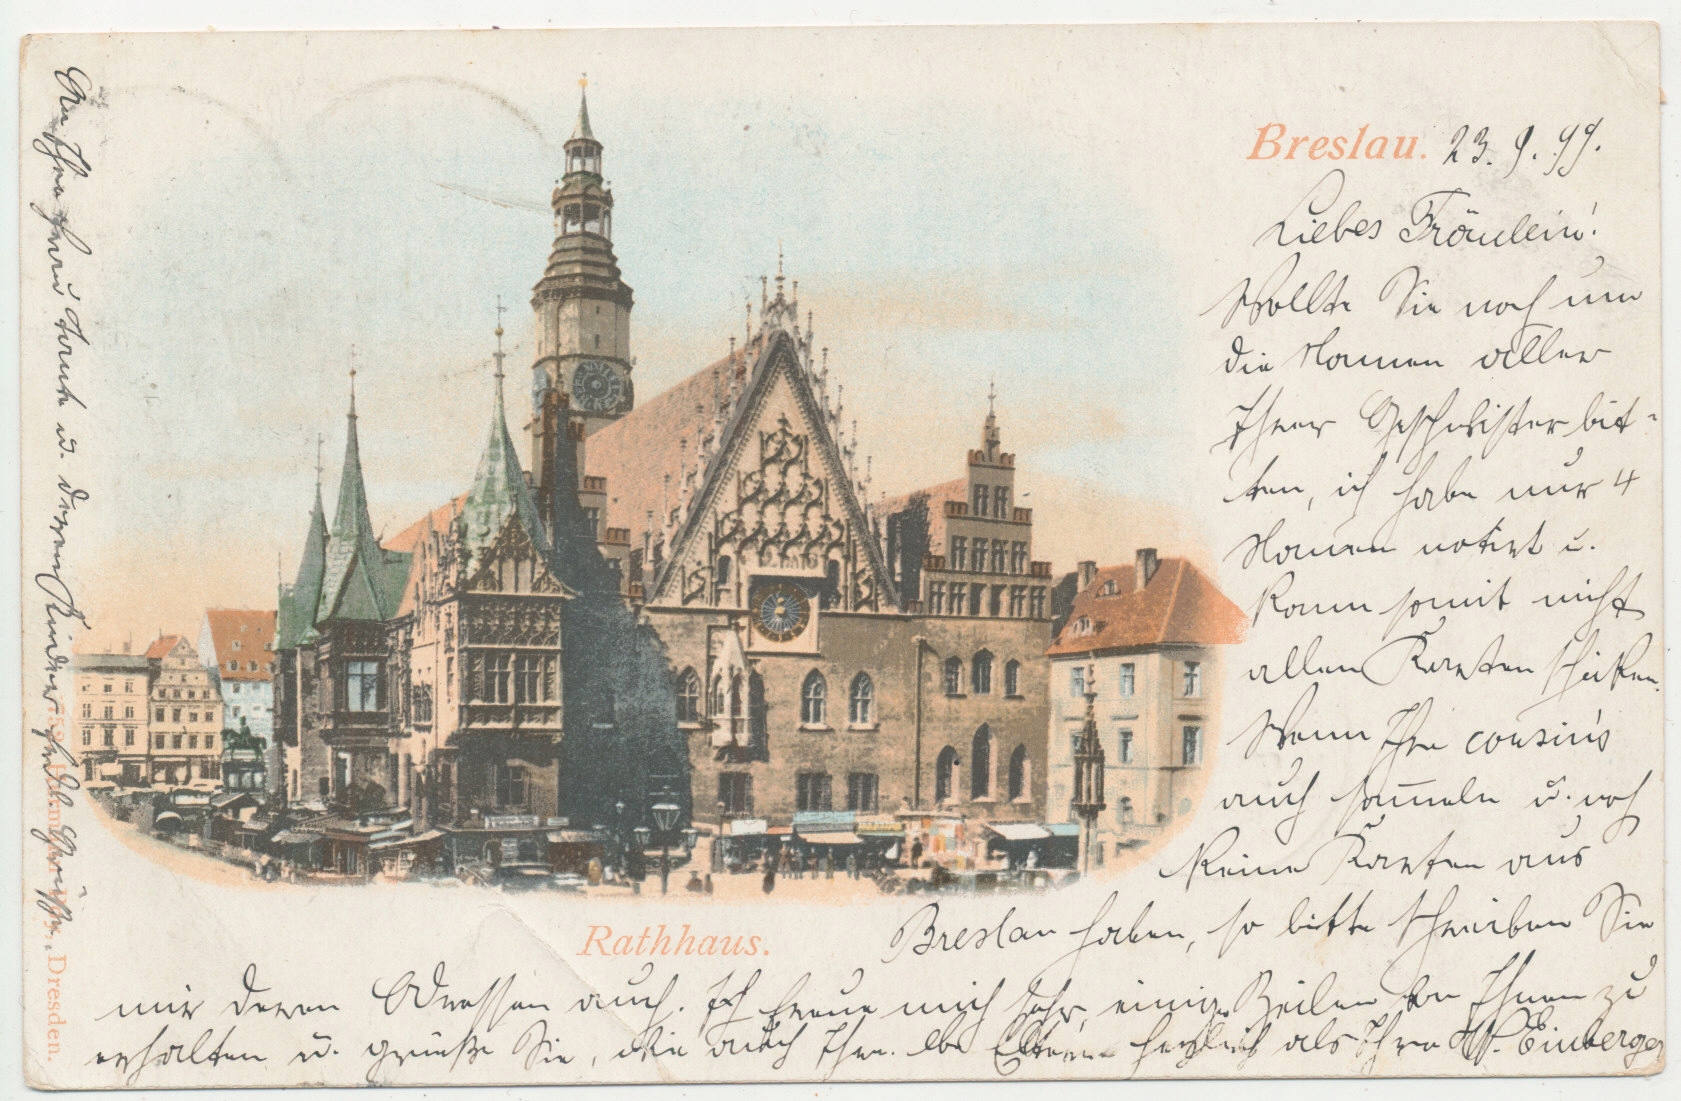 Breslau. 23. 9. 99.
Liebes Fräulein!
Wollte Sie noch um
die Namen aller
Ihrer Geschwister bit-
ten, ich habe nur 4
Namen notirt u.
kann somit nicht
allen Karten schicken.
Wenn Ihre cousin's
auch sam̅eln u. noch
keine Karten aus
Breslau haben, so bitte schreiben Sie
mir deren Adressen auch. Ich freue mich sehr, einige Zeilen von Ihnen zu
erhalten u. grüße Sie, wie auch Ihre lbe Eltern herzlich als Ihre W. Einberger
An Ihre Frau Tante u. deren Kinder Grüße.
Rathhaus.
Dresden.